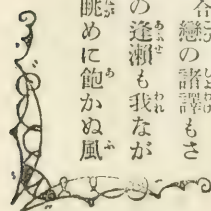 合戀の諸譯もさ
の逢瀬も我なが
眺めに飽かぬ風